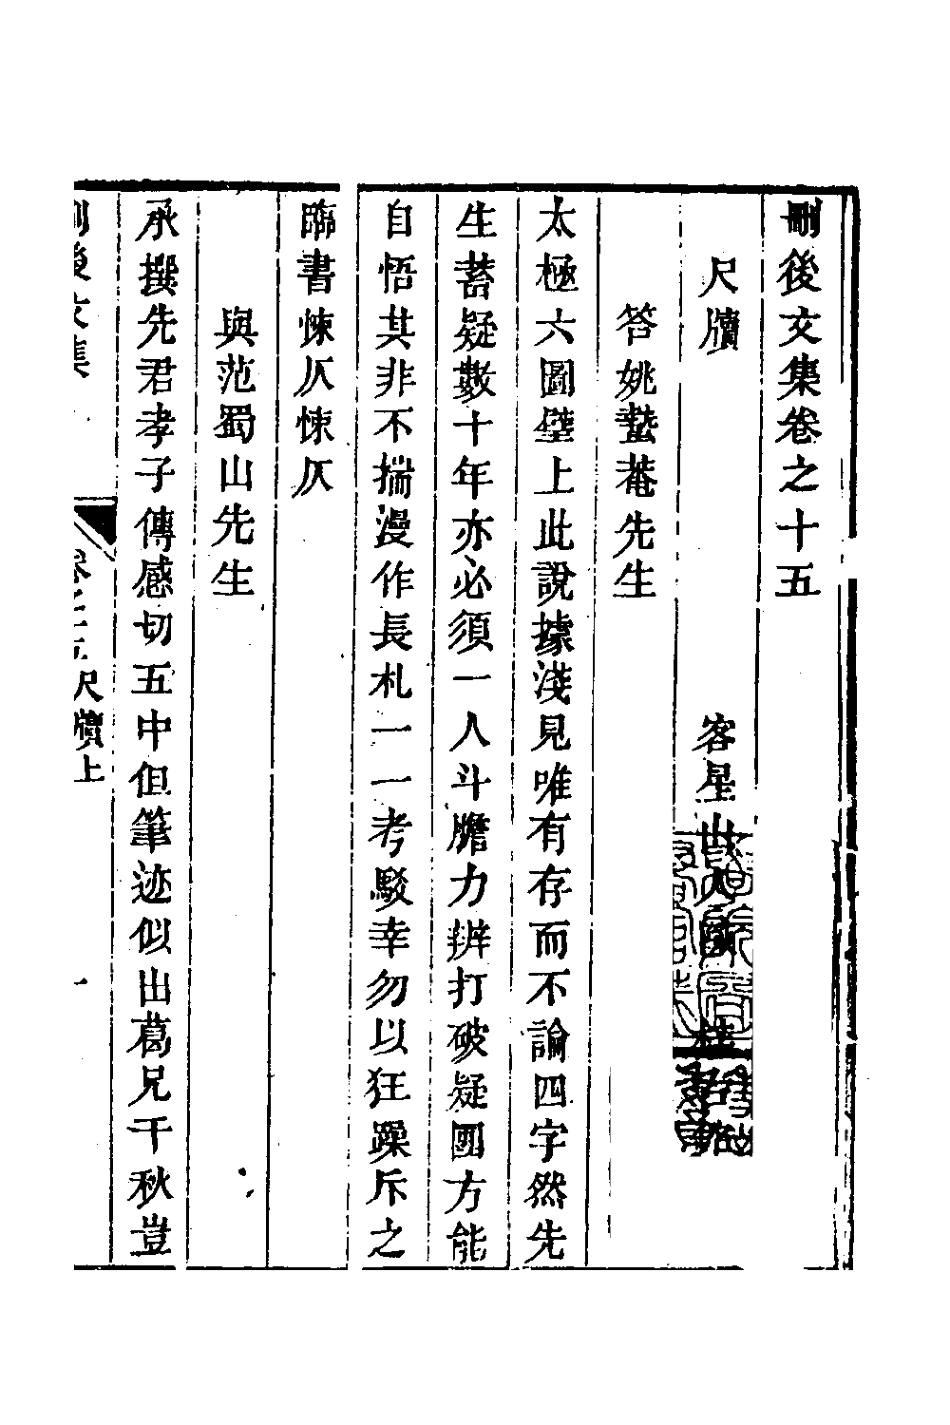 刪後文集卷之十五
尺牘
客星山人
答姚蟄菴先生
太極六圖壁上此說據淺見唯有存而不論四字然先
生蓄疑數十年亦必須一人斗膽力辨打破疑團方能
自悟其非不揣漫作長札一一考駁幸勿以狂躁斥之
臨書悚仄悚仄
與范蜀山先生
承撰先君孝子傳感切五中但筆迹似出葛兄千秋豈
刪後文集
卷之十五尺牘上
一